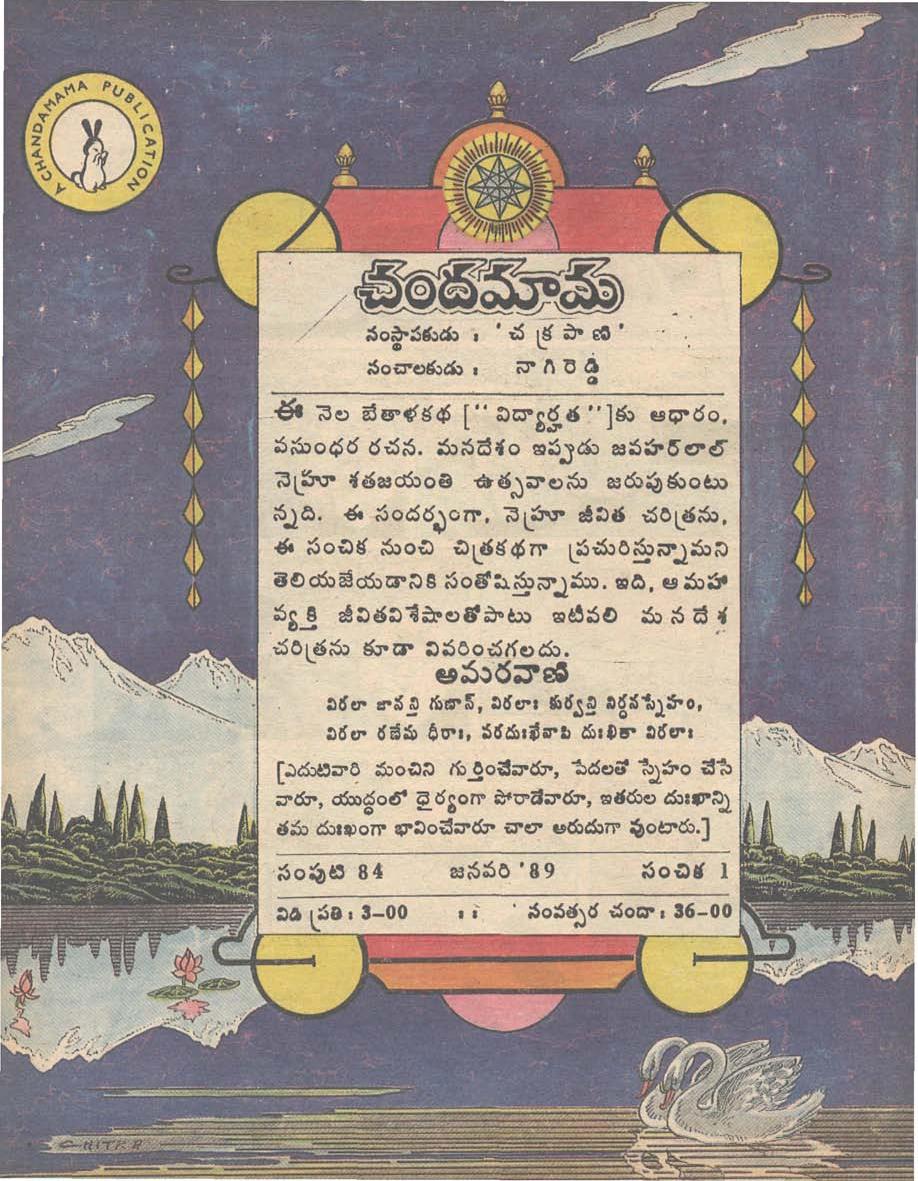 A CHANDAMAMA PUBLICATION
చందమామ
సంస్థాపకుడు : 'చక్రపాణి'
సంచాలకుడు : నాగిరెడ్డి
ఈ నెల బేతాళకథ ["విద్యార్హత"]కు ఆధారం,
వసుంధర రచన. మనదేశం ఇప్పుడు జవహర్‌లాల్
నెహ్రూ శతజయంతి ఉత్సవాలను జరుపుకుంటు
న్నది. ఈ సందర్భంగా, నెహ్రూ జీవిత చరిత్రను,
ఈ సంచిక నుంచి చిత్రకథగా ప్రచురిస్తున్నామని
తెలియజేయడానికి సంతోషిస్తున్నాము. ఇది, ఆ మహా
వ్యక్తి జీవితవిశేషాలతోపాటు ఇటీవలి మన దేశ
చరిత్రను కూడా వివరించగలదు.
అమరవాణి
విరలా జానన్తి గుణాన్, విరలాః కుర్వన్తి నిర్ధనస్నేహం,
విరలా రణేషు ధీరాః, పరదుఃఖేనాపి దుఃఖితా విరలాః
[ఎదుటివారి మంచిని గుర్తించేవారూ, పేదలతో స్నేహం చేసే
వారూ, యుద్ధంలో ధైర్యంగా పోరాడేవారూ, ఇతరుల దుఃఖాన్ని
తమ దుఃఖంగా భావించేవారూ చాలా అరుదుగా వుంటారు.]
సంపుటి 84 జనవరి '89 సంచిక 1
విడి ప్రతి : 3-00 :: సంవత్సర చందా : 36-00
CHITRA